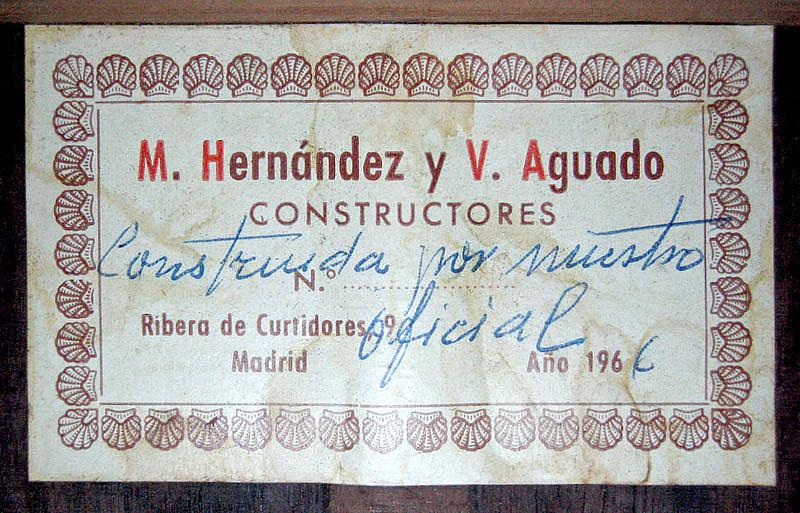 M. Hernández y V. Aguado
CONSTRUCTORES
Construida por nuestro
N.º
oficial
Ribera de Curtidores, 9
Madrid
Año 1966